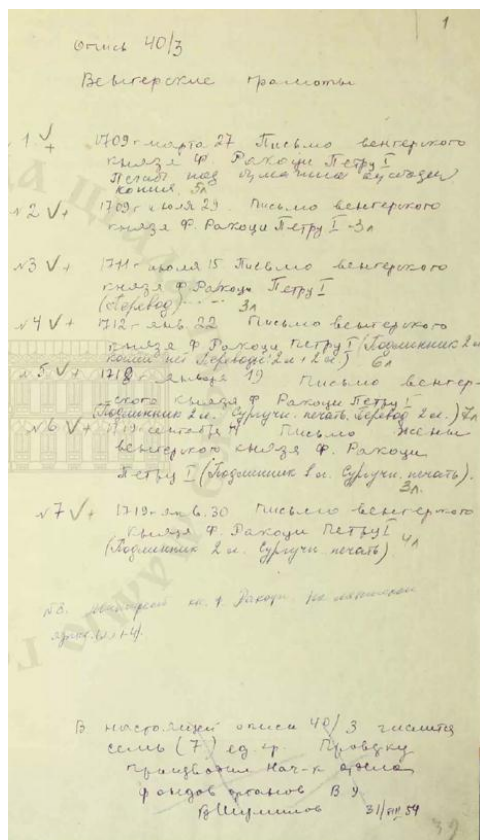 1
Опись 40/3
Венгерские грамоты
1 V + 1709 г марта 27 Письмо венгерского
князя Ф. Ракоци Петру I
Печать под
копия. 5л
№2 V + 1709 г июля 29. Письмо венгерского
князя Ф. Ракоци Петру I - 3л
№3 V + 1711 г июля 15. Письмо венгерского
князя Ф. Ракоци Петру I
(Перевод) 3л
№4 V + 1712 г янв. 22 Письмо венгерского
князя Ф. Ракоци Петру I (Подлинник 2л
2л + 2л) 6л
№5 V + января 19 Письмо венгер-
ского князя Ф. Ракоци Петру I
(Подлинник 2л. Сургучн. печать. Перевод 2л.)
№6 V + Письмо жены
венгерского князя Ф. Ракоци
Петру I (Подлинник 1л. Сургучн. печать).
3л.
№7 V + 1719 г янв. 30 Письмо венгерского
князя Ф. Ракоци Петру I
(Подлинник 2л. Сургучн. печать). 4л
кн. Ф. Ракоци. На латинском
В настоящей описи 40/3 числится
семь (7) ед. хр. Проверку
производил Нач-к отдела
фондов органов В.У.
ВШумилов 31/VIII 54